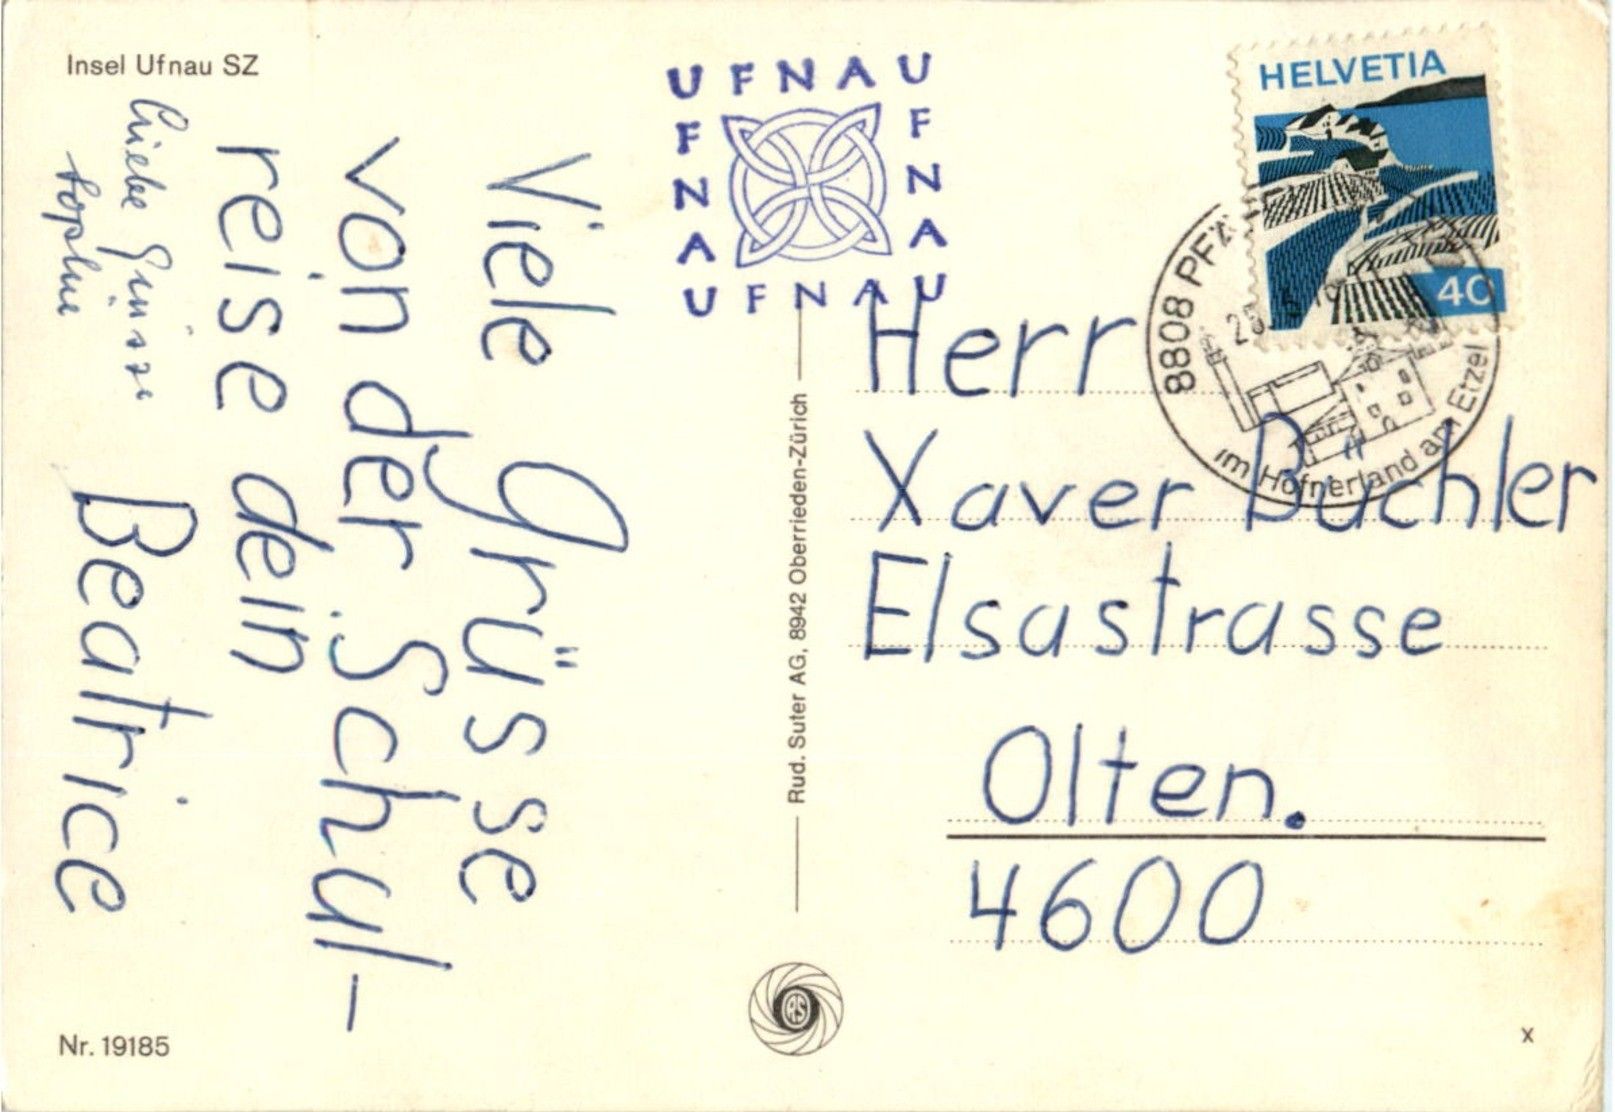 Insel Ufnau SZ
Viele Grüsse
von der Schul-
reise dein
Beatrice
Liebe Grüsse
Sophie
UFNAU
UFNAU
UFNAU
UFNAU
HELVETIA
40
8808 PFÄ
im Höfnerland am Etzel
Herr
Xaver Büchler
Elsastrasse
Olten.
4600
Rud. Suter AG, 8942 Oberrieden-Zürich
RS
Nr. 19185
x